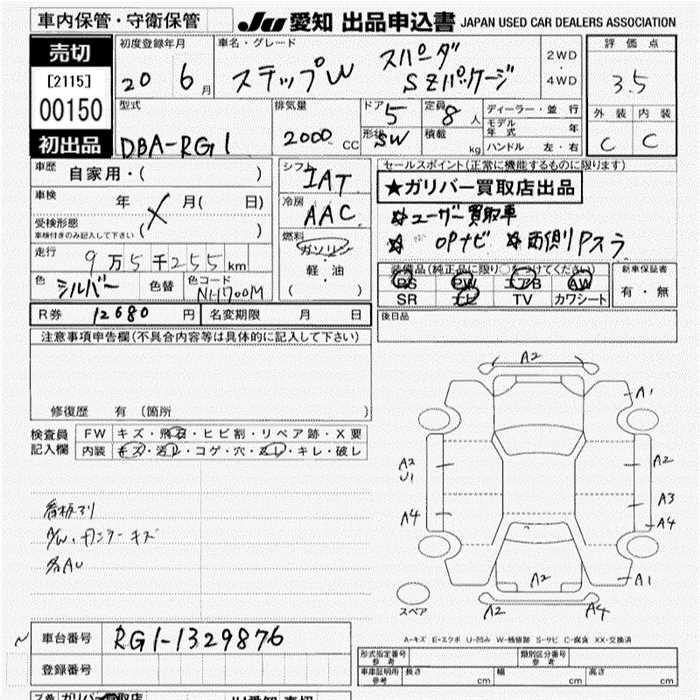 車内保管・守衛保管 JU 愛知 出品申込書 JAPAN USED CAR DEALERS ASSOCIATION
売切
[2115]
00150
初出品
初度登録年月
20 6月
車名・グレード
ステップW スパーダ
SZパッケージ
2WD
4WD
評価点
3.5
外装 内装
C C
型式
DBA-RG1
排気量
2000 CC
ドア 5
形状 SW
定員 8人
積載 kg
ディーラー・並行
モデル年式 年
ハンドル 左・右
車歴 自家用・( )
車検 年 月( 日)
受検形態
車検付きのみ記入して下さい ( )
走行 9万5千255km
色 シルバー 色替 色コード NH700M
シフト IAT
冷房 AAC
燃料 ガソリン
軽・油
( )
セールスポイント(正常に機能するものに限ります)
★ガリバー買取店出品
☆ユーザー買取車
☆ OPナビ ☆両側Pスラ
装備品(純正品に限り○をつけてください)
PS PW エアB AW
SR ナビ TV カワシート
新車保証書
有・無
R券 12680円 名変期限 月 日
後日品
注意事項申告欄(不具合内容等は具体的に記入して下さい)
修復歴 有 (箇所 )
検査員記入欄
FW キズ・飛石・ヒビ割・リペア跡・X要
内装 キズ・汚れ・コゲ・穴・スレ・キレ・破レ
A2
A1
A2
U1
A2
A3
A4
A4
A1
A2
A2
A4
スペア
各AU
A-キズ E-エクボ U-凹み W-補修跡 S-サビ C-腐食 XX-交換済
車台番号 RG1-1329876
登録番号
形式指定番号 参考
類別区分番号 参考
車庫証明用 参考 長さ cm 幅 cm 高さ cm
ガリバー買取店 JU愛知 売切